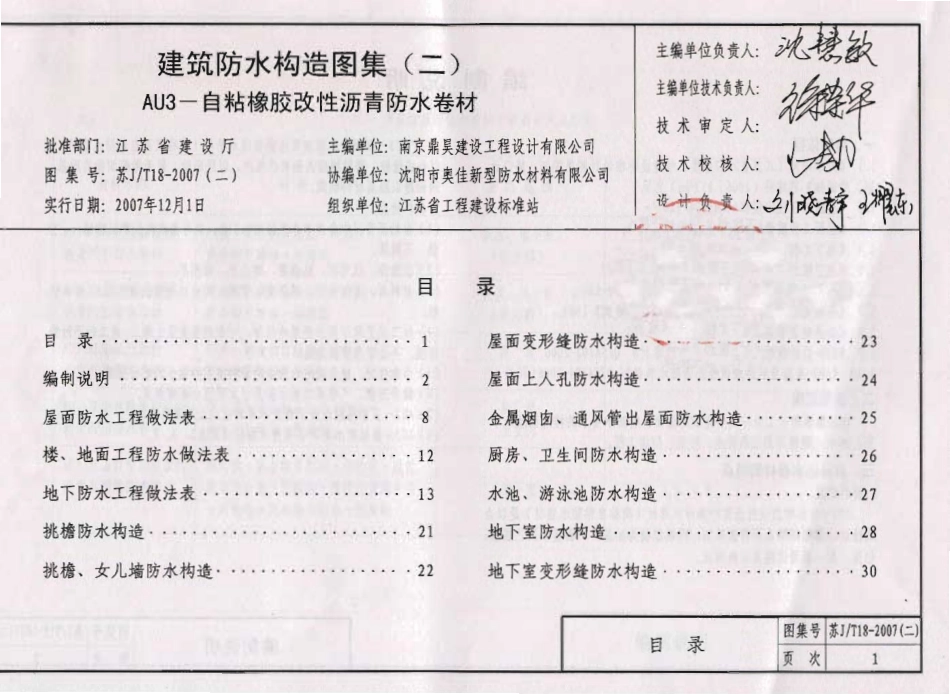 建筑防水构造图集（二）
AU3－自粘橡胶改性沥青防水卷材
批准部门：江苏省建设厅
图集号：苏J/T18-2007（二）
实行日期：2007年12月1日
主编单位：南京鼎昊建设工程设计有限公司
协编单位：沈阳市奥佳新型防水材料有限公司
组织单位：江苏省工程建设标准站
主编单位负责人：
主编单位技术负责人：
技术审定人：
技术校核人：
设计负责人：
目 录
目 录 1
编制说明 2
屋面防水工程做法表 8
楼、地面工程防水做法表 12
地下防水工程做法表 13
挑檐防水构造 21
挑檐、女儿墙防水构造 22
屋面变形缝防水构造 23
屋面上人孔防水构造 24
金属烟囱、通风管出屋面防水构造 25
厨房、卫生间防水构造 26
水池、游泳池防水构造 27
地下室防水构造 28
地下室变形缝防水构造 30
目 录
图集号 苏J/T18-2007(二)
页 次 1